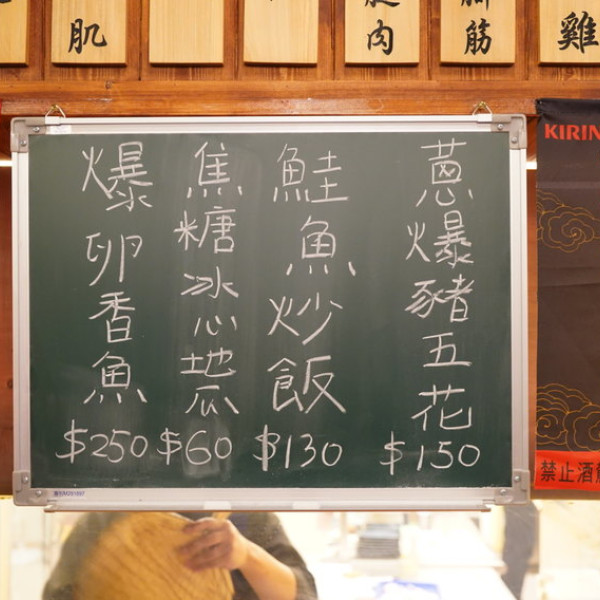 肌
肉
筋
雞
蔥爆豬五花
$150
鮭魚炒飯
$130
焦糖冰心地瓜
$60
爆卵香魚
$250
KIRIN
禁止酒